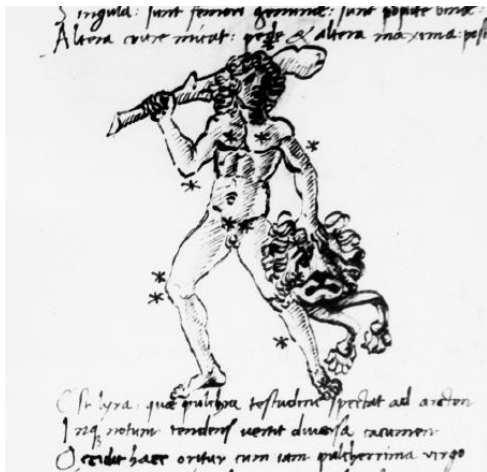 Singula: sunt femori geminæ: sunt poplite binæ:
Altera crure micat: pede & altera maxima: pos
Est lyra: quæ pulchra testudine spectat ad arcton
Inq; notum tendens uertit diuersa cacumen
Occidit haec oritur cum iam pulcherrima uirgo